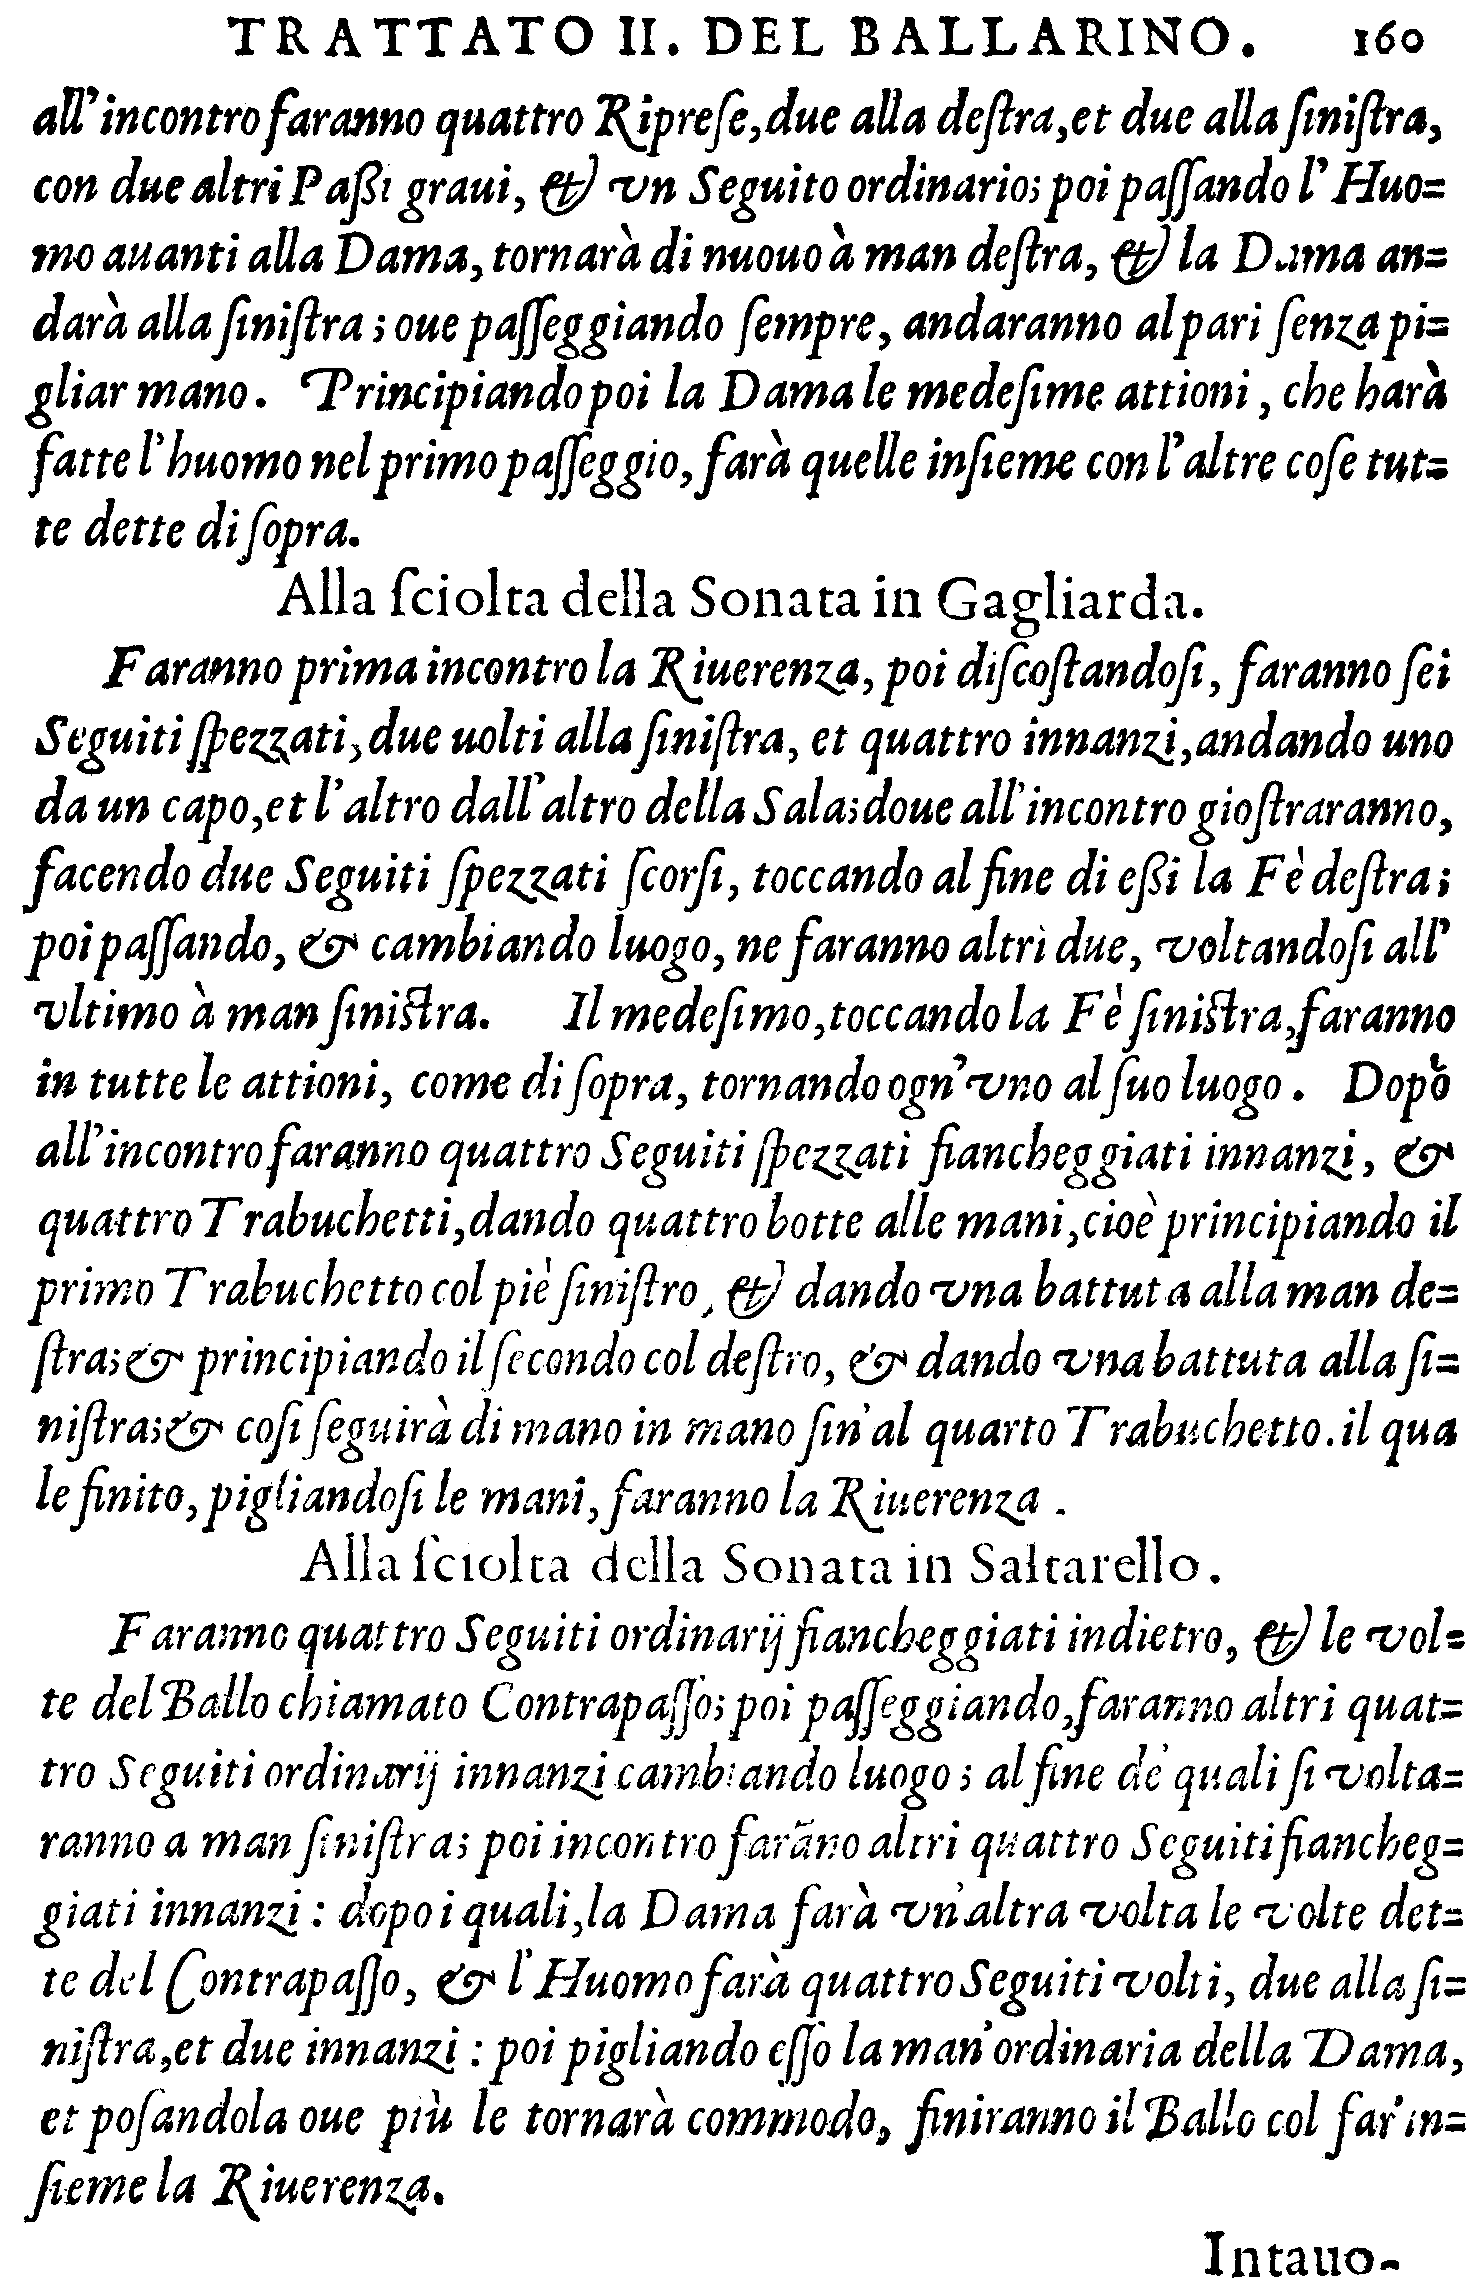 TRATTATO II. DEL BALLARINO. 160
all'incontro faranno quattro Ripreſe, due alla deſtra, et due alla ſiniſtra,
con due altri Paßi graui, & vn Seguito ordinario; poi paſſando l'Huo=
mo auanti alla Dama, tornarà di nuouo à man deſtra, & la Dama an=
darà alla ſiniſtra; oue paſſeggiando ſempre, andaranno al pari ſenza pi=
gliar mano. Principiando poi la Dama le medeſime attioni, che harà
fatte l'huomo nel primo paſſeggio, farà quelle inſieme con l'altre coſe tut=
te dette di ſopra.
Alla ſciolta della Sonata in Gagliarda.
Faranno prima incontro la Riuerenza, poi diſcoſtandoſi, faranno ſei
Seguiti ſpezzati, due uolti alla ſiniſtra, et quattro innanzi, andando uno
da un capo, et l'altro dall'altro della Sala; doue all'incontro gioſtraranno,
facendo due Seguiti ſpezzati ſcorſi, toccando al fine di eßi la Fè deſtra;
poi paſſando, & cambiando luogo, ne faranno altri due, voltandoſi all'
vltimo à man ſiniſtra. Il medeſimo, toccando la Fè ſiniſtra, faranno
in tutte le attioni, come di ſopra, tornando ogn'vno al ſuo luogo. Dopò
all'incontro faranno quattro Seguiti ſpezzati fiancheggiati innanzi, &
quattro Trabuchetti, dando quattro botte alle mani, cioè principiando il
primo Trabuchetto col piè ſiniſtro, & dando vna battuta alla man de=
ſtra; & principiando il ſecondo col deſtro, & dando vna battuta alla ſi=
niſtra; & coſi ſeguirà di mano in mano ſin'al quarto Trabuchetto. il qua
le finito, pigliandoſi le mani, faranno la Riuerenza.
Alla ſciolta della Sonata in Saltarello.
Faranno quattro Seguiti ordinarij fiancheggiati indietro, & le vol=
te del Ballo chiamato Contrapaſſo; poi paſſeggiando, faranno altri quat=
tro Seguiti ordinarij innanzi cambiando luogo; al fine de' quali ſi volta=
ranno a man ſiniſtra; poi incontro farāno altri quattro Seguiti fiancheg=
giati innanzi: dopo i quali, la Dama farà vn'altra volta le volte det=
te del Contrapaſſo, & l'Huomo farà quattro Seguiti volti, due alla ſi=
niſtra, et due innanzi: poi pigliando eſſo la man' ordinaria della Dama,
et poſandola oue più le tornarà commodo, finiranno il Ballo col far' in=
ſieme la Riuerenza.
Intauo-